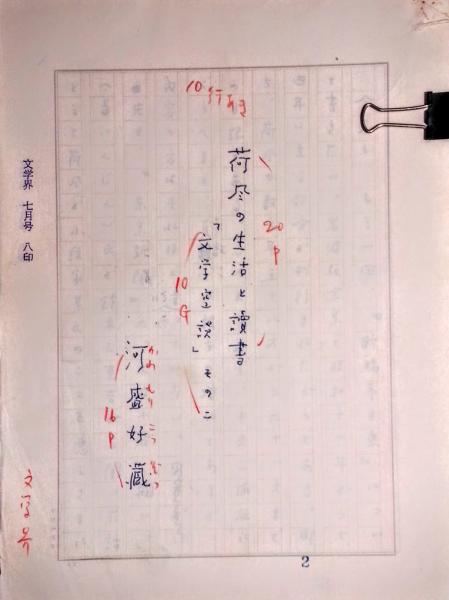 10行どり
荷風の生活と讀書
20P
「文学空談」その二
10G
河盛好藏
かわもりこうぞう
16P
文学界 七月号 八印
文学界
2